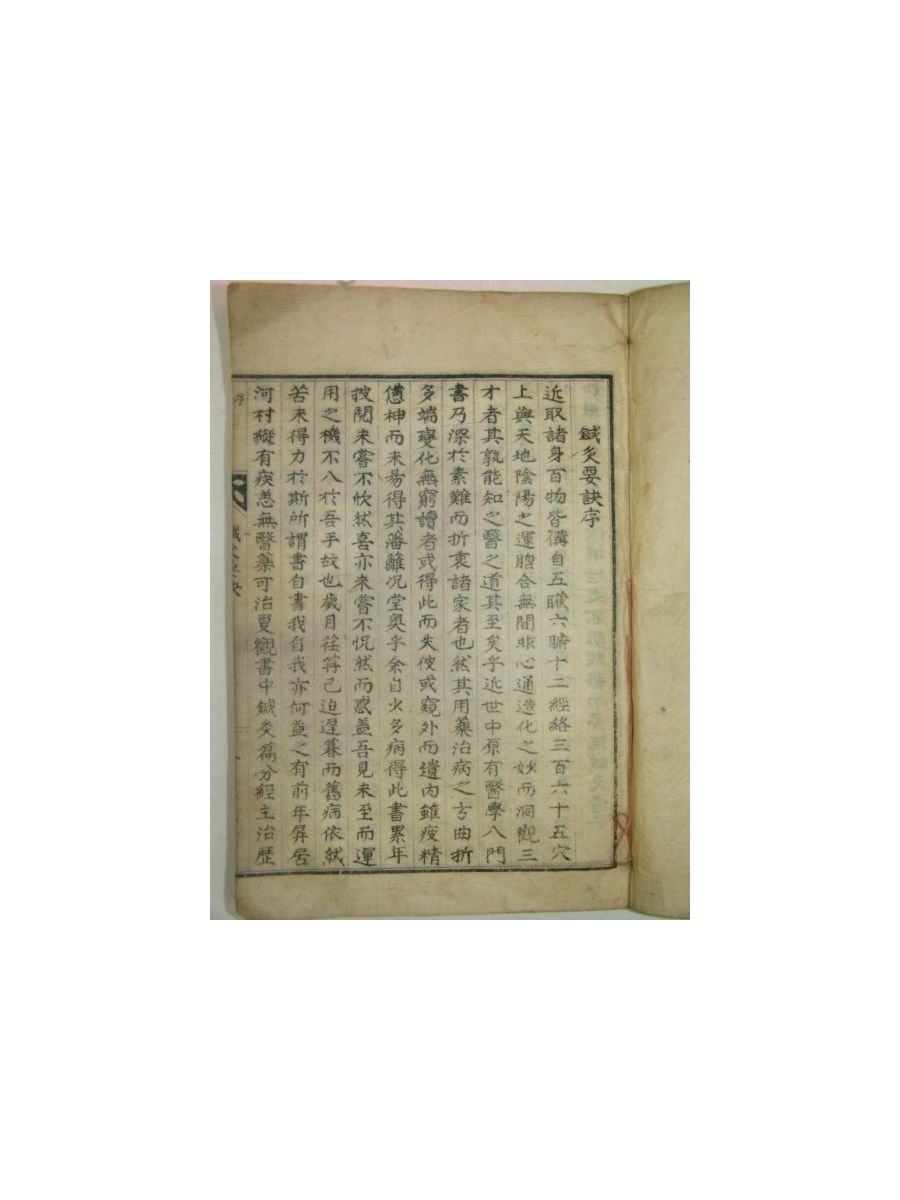 鍼灸要訣序
近取諸身百物皆備自五臟六腑十二經絡三百六十五穴
上與天地陰陽之運脗合無間非心通造化之妙而洞觀三
才者其孰能知之醫之道其至矣乎近世中原有醫學入門
書乃深於素難而折衷諸家者也然其用藥治病之方曲折
多端變化無窮讀者或得此而失彼或窺外而遺內雖疲精
憊神而未易得其藩籬况堂奧乎余自少多病得此書累年
披閱未嘗不欣然喜亦未嘗不怳然而惑盖吾見未至而運
用之機不入於吾手故也歲月荏苒已迫遲暮而舊病依然
苦未得力於斯所謂書自書我自我亦何益之有前年屏居
河村縱有疾恙無醫藥可治夏觀書中鍼灸篇分經主治歷
序
鍼灸要決